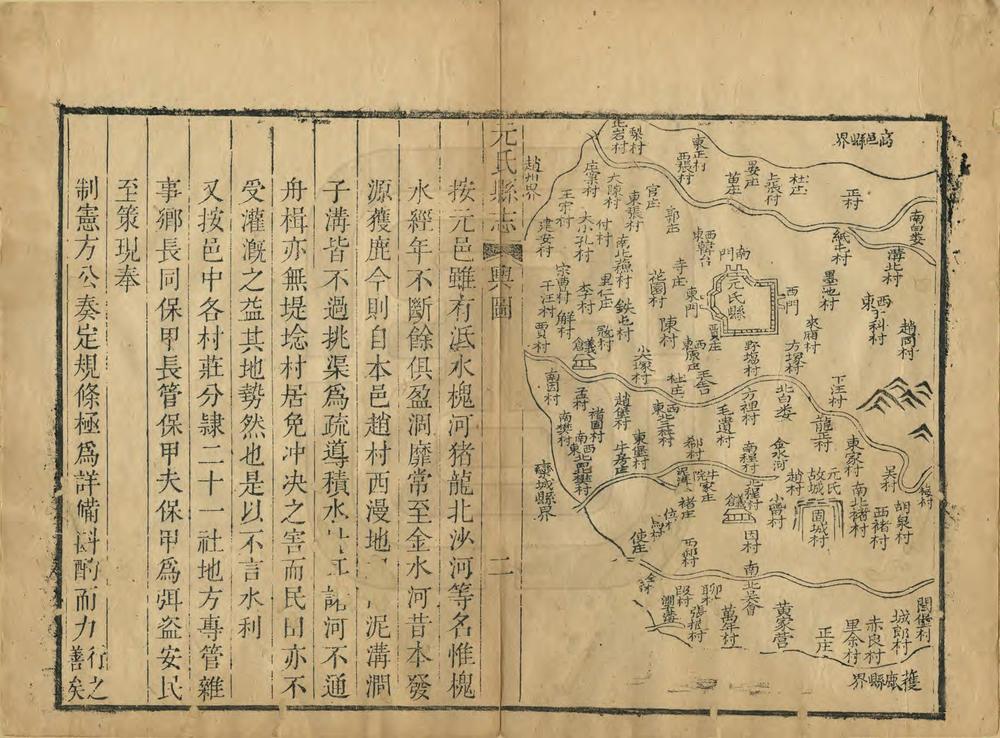 高邑縣界
杜庄
正村
上張村
晏庄
苗庄
東正村
西張村
梨村
正岩村
趙州界
南嵒娄
溝北村
紙屯村
墨池村
趙同村
宮庄
大陳村
東張村
付村
王宋村
大小孔村
建安村
南門
元氏縣
西門
東門
寺庄
花園村
陳村
里仁庄
鉄屯村
李村
宋曹村
解村
干汪村
賈村
賈庄
野場村
來廂村
方塚村
尖塚村
杜庄
王舍
方裡村
北白娄
下汪村
龍正村
東家村
吴村
南因村
孟村
褚固村
趙堡村
東堡村
毛遺村
金水河
趙村
元氏故城
固城村
南北褚村
西褚村
胡泉村
欒城縣界
南程村
北程村
因村
褚庄
使庄
南北吴會
黃家营
萬年村
張根村
段村
正庄
里余村
赤良村
城郎村
閻堡村
獲鹿縣界
元氏縣志
輿圖
二
按元邑雖有泜水槐河猪龍北沙河等名惟槐
水經年不斷餘俱盈涸靡常至金水河昔本發
源獲鹿今則自本邑趙村西漫地 泥溝澗
子溝皆不過挑渠爲疏導積水 河不通
舟楫亦無堤埝村居免冲决之害而民田亦不
受灌溉之益其地勢然也是以不言水利
又按邑中各村莊分隷二十一社地方專管雜
事鄉長同保甲長管保甲夫保甲爲弭盗安民
至策現奉
制憲方公奏定規條極爲詳備斟酌而力行之
善矣